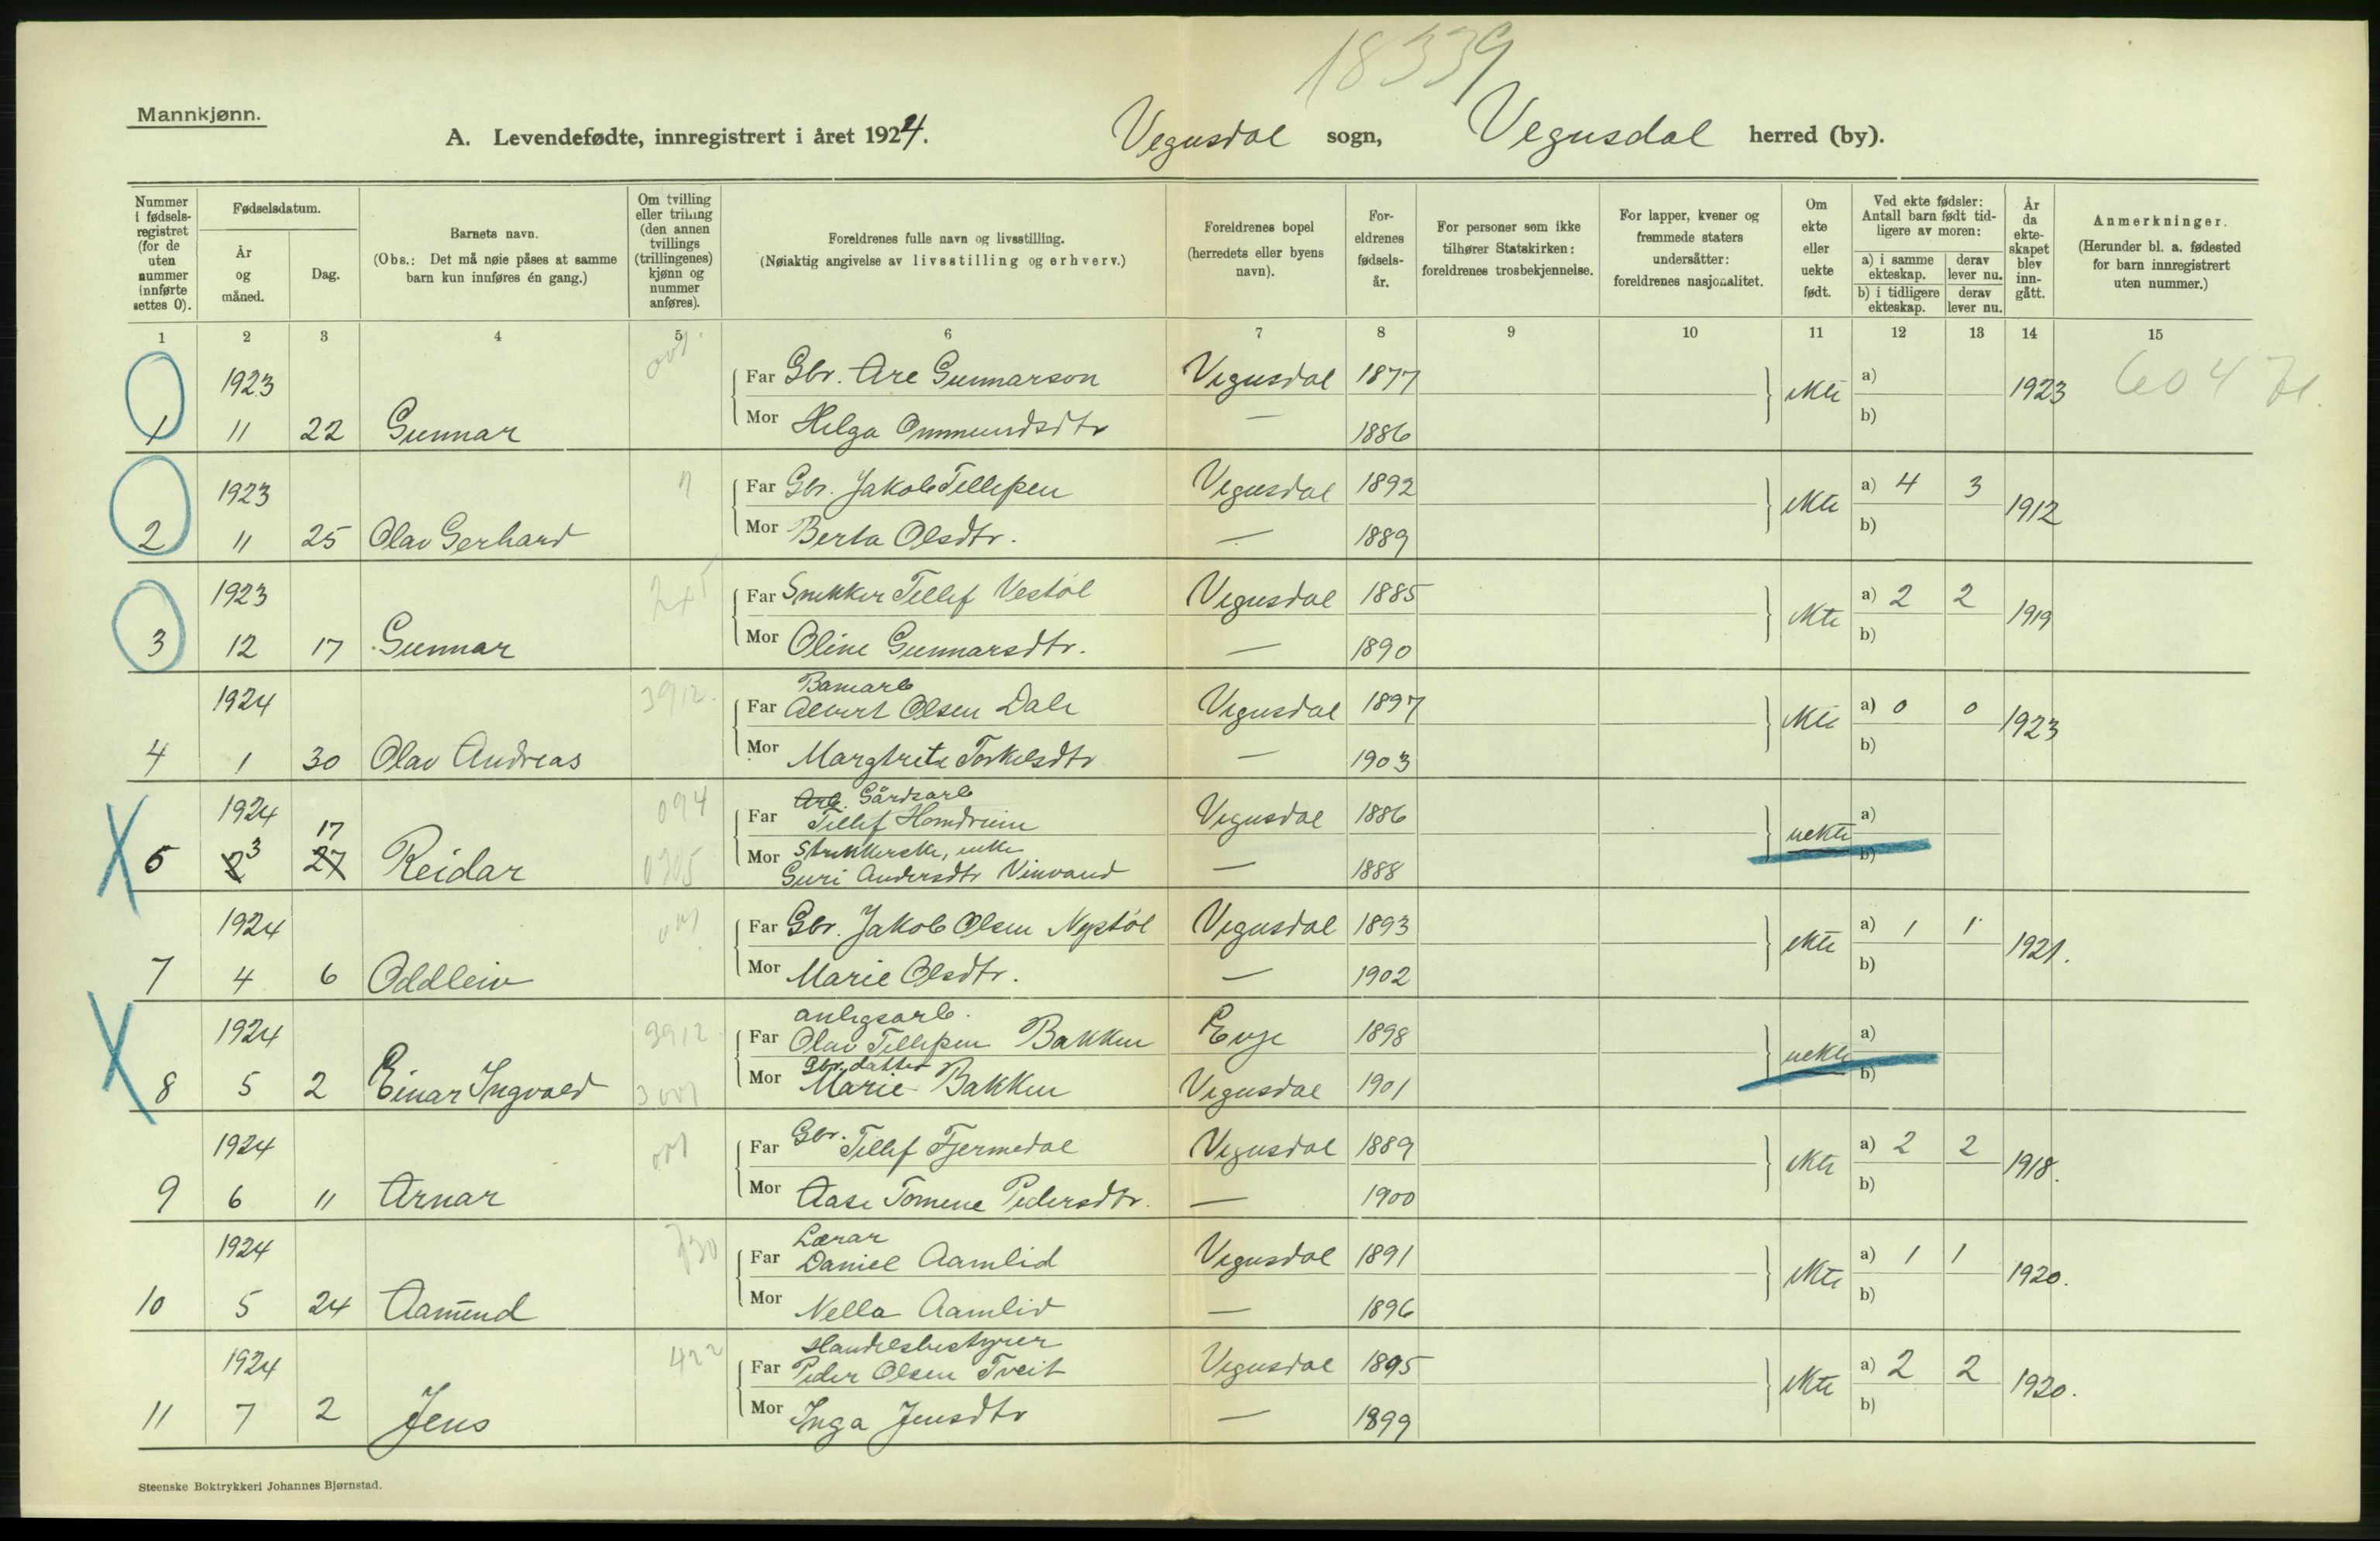 18339
Mannkjønn.
A. Levendefødte, innregistrert i året 1924. Vegusdal sogn, Vegusdal herred (by).
Nummer i fødselsregistret (for de uten nummer innførte settes 0).
Fødselsdatum.
År og måned.
Dag.
Barnets navn.
(Obs.: Det må nøie påses at samme barn kun innføres én gang.)
Om tvilling eller trilling (den annen tvillings (trillingenes) kjønn og nummer anføres).
Foreldrenes fulle navn og livsstilling.
(Nøiaktig angivelse av livsstilling og erhverv.)
Foreldrenes bopel (herredets eller byens navn).
Foreldrenes fødselsår.
For personer som ikke tilhører Statskirken: foreldrenes trosbekjennelse.
For lapper, kvener og fremmede staters undersåtter: foreldrenes nasjonalitet.
Om ekte eller uekte født.
Ved ekte fødsler: Antall barn født tidligere av moren:
a) i samme ekteskap. derav lever nu.
b) i tidligere ekteskap. derav lever nu.
År da ekteskapet blev inngått.
Anmerkninger.
(Herunder bl. a. fødested for barn innregistrert uten nummer.)
1 2 3 4 5 6 7 8 9 10 11 12 13 14 15
1923 Far Gbr. Are Gunnarson Vegusdal 1877 ekte a) 1923 604
1 11 22 Gunnar Mor Helga Ommundsdtr — 1886 b)
1923 Far Gbr. Jakob Tellefsen Vegusdal 1892 ekte a) 4 3 1912
2 11 25 Olav Gerhard Mor Berta Olsdtr. — 1889 b)
1923 Far Snekker Tellef Vestøl Vegusdal 1885 ekte a) 2 2 1919
3 12 17 Gunnar Mor Oline Gunnarsdtr. — 1890 b)
3912.
Banearb
1924 Far Alvert Olsen Dale Vegusdal 1897 ekte a) 0 0 1923
4 1 30 Olav Andreas Mor Margtrete Torkelsdtr — 1903 b)
094
Arb. Gårdsarb
1924 17 Far Tellef Homdrom Vegusdal 1886 uekte a)
5 2 3 27 Reidar Mor Strikkerske, enke — 1888 b)
Guri Andersdtr Vinvand
1924 Far Gbr. Jakob Olsen Nystøl Vegusdal 1893 ekte a) 1 1 1921.
7 4 6 Oddleiv Mor Marie Olsdtr. — 1902 b)
3912
anlegsarb.
1924 Far Olav Tellefsen Bakken Evje 1898 uekte a)
Gbr. datter
8 5 2 Einar Ingvald Mor Marie Bakken Vegusdal 1901 b)
1924 Far Gbr. Tellef Fjermedal Vegusdal 1889 ekte a) 2 2 1918.
9 6 11 Arnar Mor Aase Tomene Pedersdtr. — 1900 b)
Lærar
1924 Far Daniel Aamlid Vegusdal 1891 ekte a) 1 1 1920.
10 5 24 Aamund Mor Nella Aamlid — 1896 b)
422
Handelsbestyrer
1924 Far Peder Olsen Tveit Vegusdal 1895 ekte a) 2 2 1920.
11 7 2 Jens Mor Inga Jensdtr — 1899 b)
Steenske Boktrykkeri Johannes Bjørnstad.